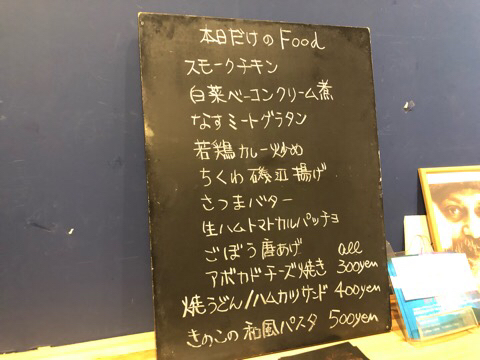 本日だけのFood
スモークチキン
白菜ベーコンクリーム煮
なすミートグラタン
若鶏カレー炒め
ちくわ磯辺揚げ
さつまバター
生ハムトマトカルパッチョ
ごぼう唐あげ all
アボカドチーズ焼き 300yen
焼うどん/ハムカツサンド 400yen
きのこの和風パスタ 500yen